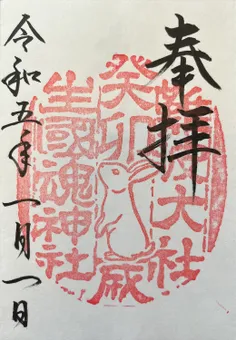 奉拝
難波大社
癸卯歳
生國魂神社
令和五年一月一日